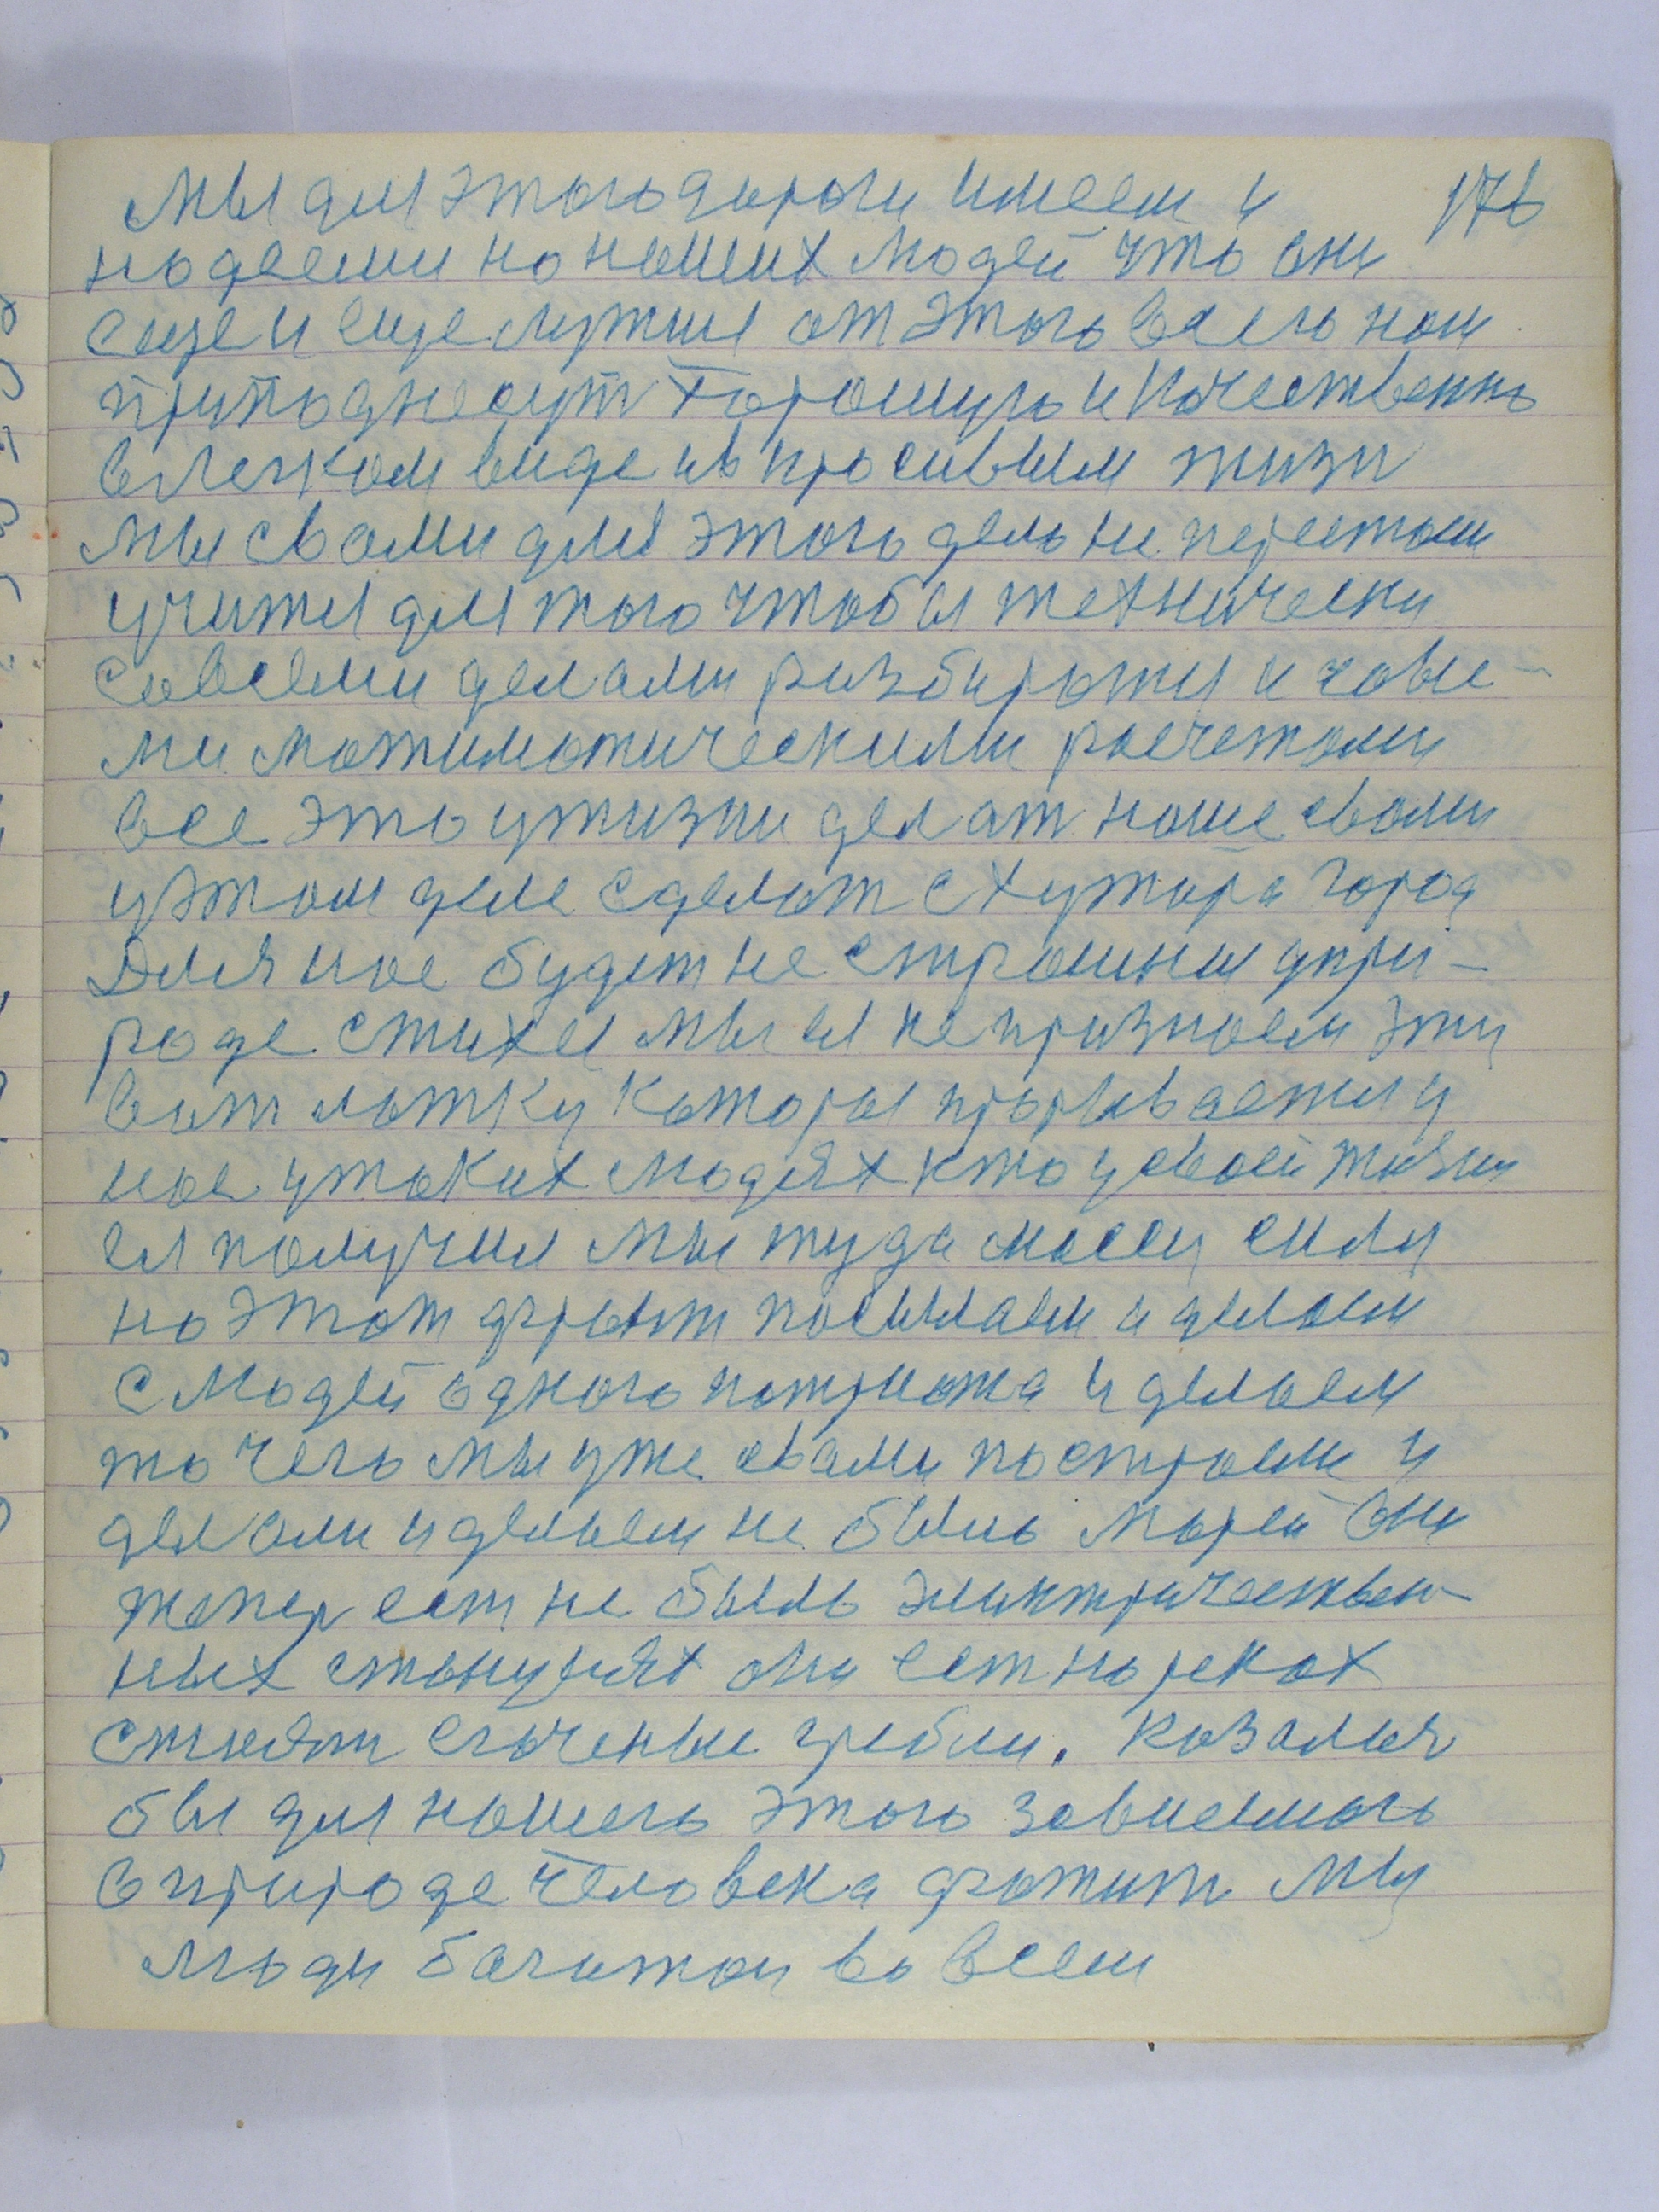 Мы для этого дароги имеем и 176
надееми на наших людей что они
еще и еще лутшы от этого всего нам
приподнесут хорошую и качественно
в легком виде и в красивыим жизи
мы свами для этого дела не перестаем
учитя для того чтоб ы технически
со всеми делами разбиратия и
ми матиматическими расчетами
все это у жизни делат наше свами
у этом деле сделат с хутора город
Для нас будет не страшны у при-
роде стихея мы ея не признаем эту
вот латку которыя прорываетия у
нас у таких людях кто у своей жизни
ея получил мы туда массу силы
на этот фронт посылаем и делаем
с людей одного патриота и делаем
то чего мы уже свами построеми и
делали и делаем не было морей они
тепер ест не было электричествен-
ных станцыях они ест на реках
стаят греблы. Казался
бы для нашего этого зависимого
в природе человека фатит мы
люди багаты во всем